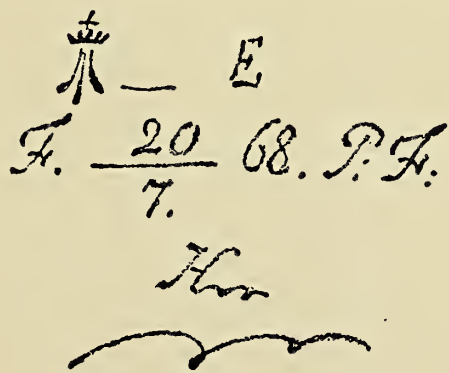 E
F. 20/7. 68. P. F.